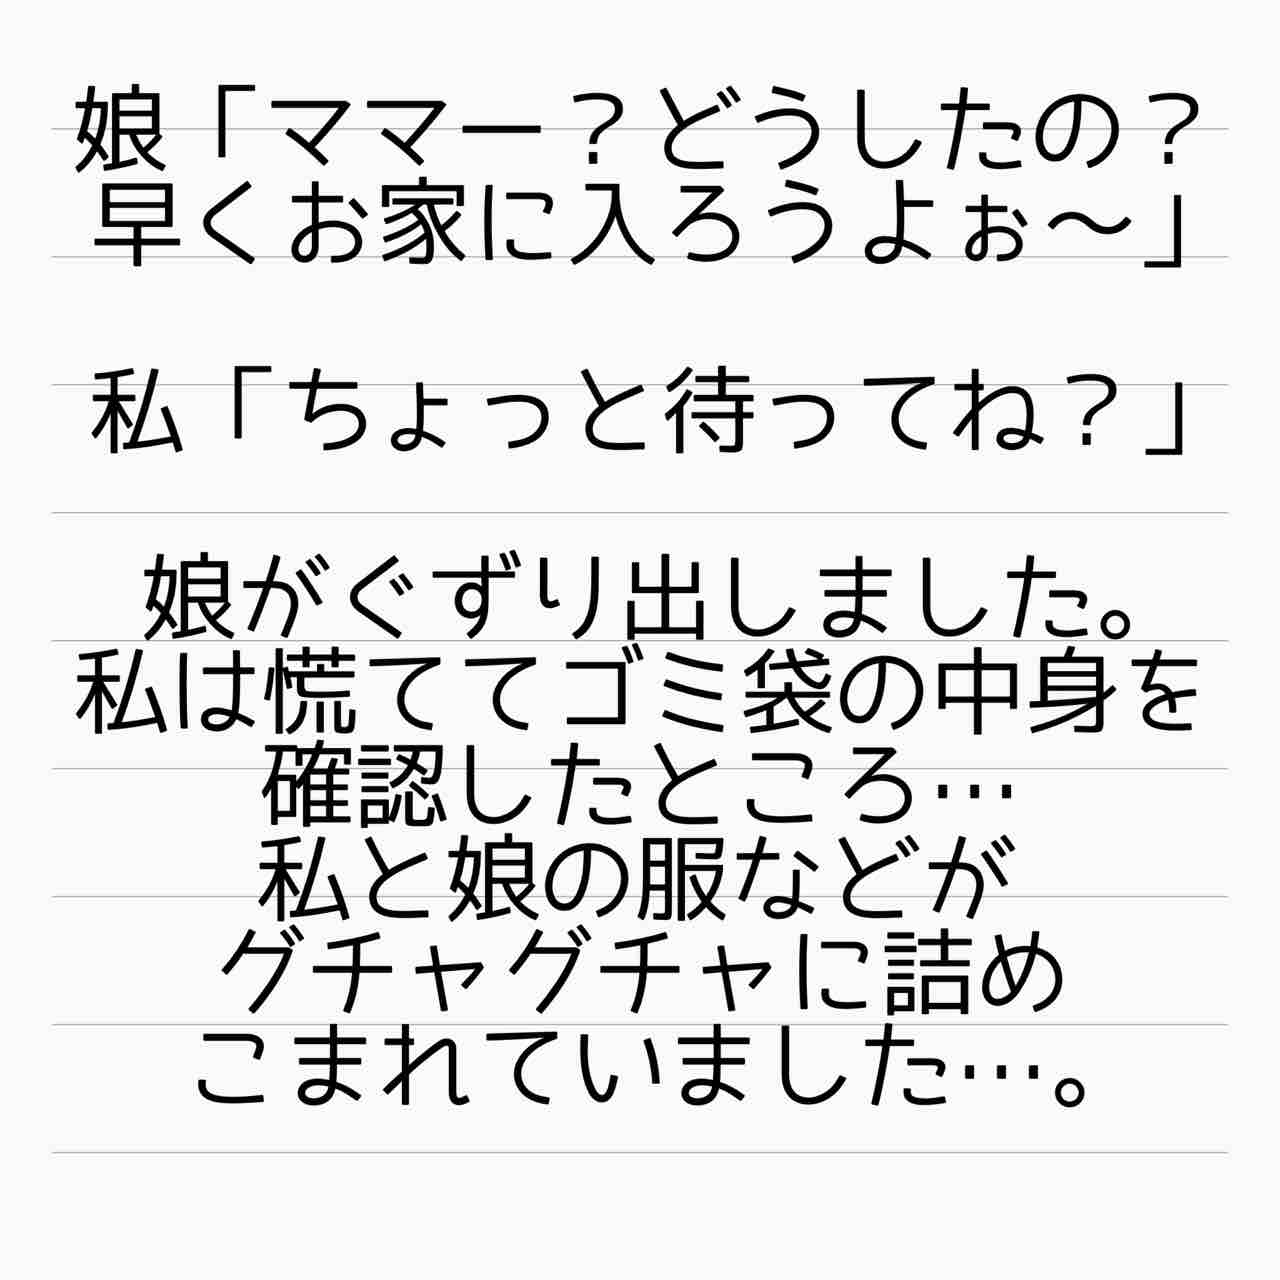 娘「ママー？どうしたの？
早くお家に入ろうよぉ〜」
私「ちょっと待ってね？」
娘がぐずり出しました。
私は慌ててゴミ袋の中身を
確認したところ…
私と娘の服などが
グチャグチャに詰め
こまれていました…。